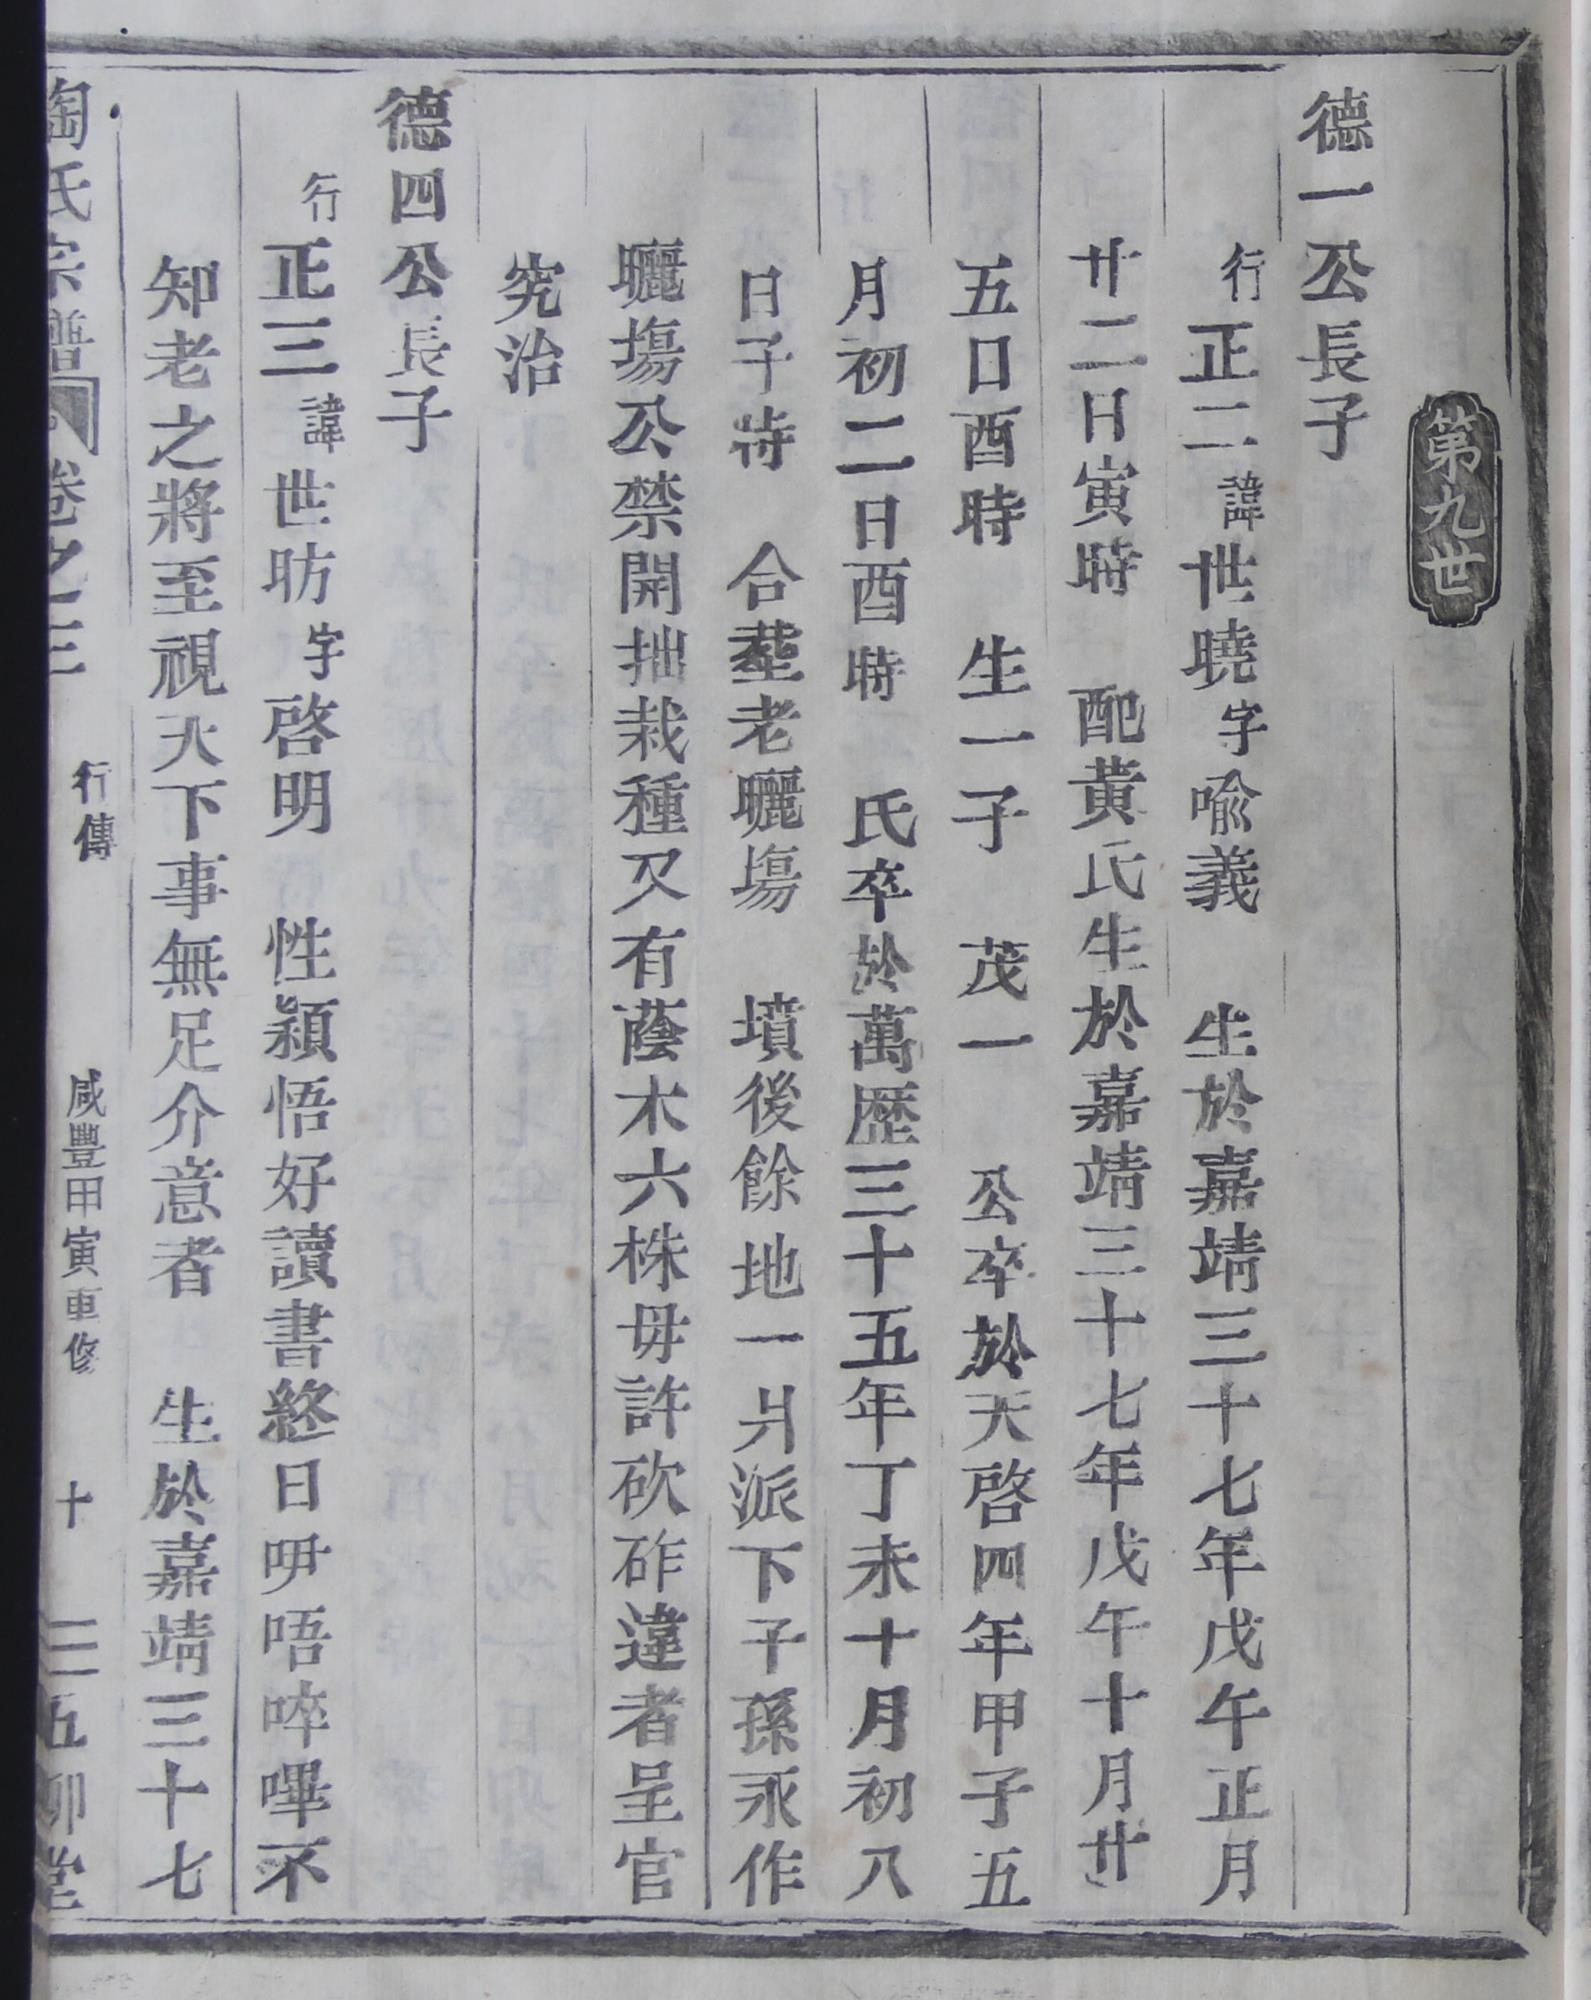 第九世
德一公長子
行正二諱世曉字喩義　生於嘉靖三十七年戊午正月
廿二日寅時　配黃氏生於嘉靖三十七年戊午十月廿
五日酉時　生一子　茂一　公卒於天啓四年甲子五
月初二日酉時　氏卒於萬歴三十五年丁未十月初八
日子時　合塟老曬塲　墳後餘地一爿派下子孫永作
曬塲公禁開拙栽種又有蔭木六株毋許砍砟違者呈官
究治
德四公長子
行正三諱世昉字啓明　性穎悟好讀書終日吚唔啐嗶不
知老之將至視天下事無足介意者　生於嘉靖三十七
陶氏宗譜　卷之三　行傳　咸豐甲寅重修　十　五柳堂